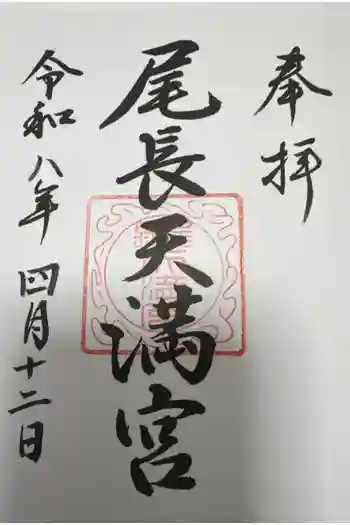 奉拝
尾長天満宮
令和八年四月十二日